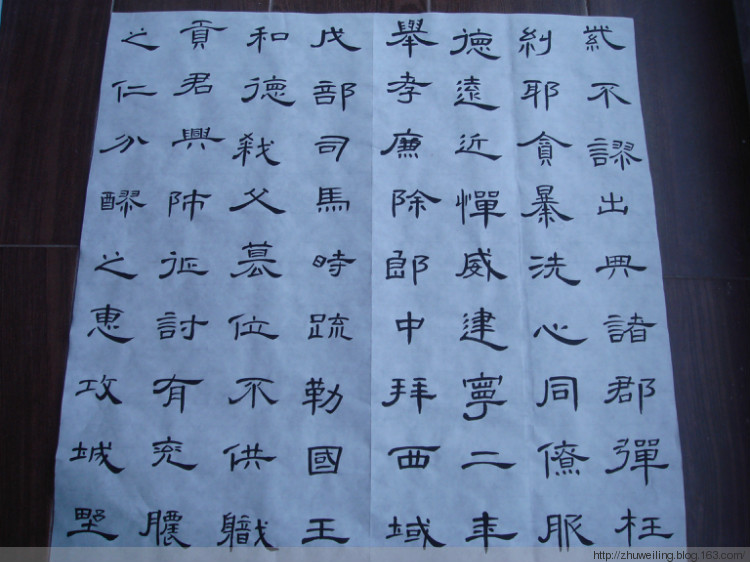 紫不謬出典諸郡彈枉
糾耶貪暴洗心同僚服
德遠近憚威建寧二年
舉孝廉除郎中拜西域
戊部司馬時疏勒國王
和德弒父篡位不供職
貢君興師征討有兗膿
之仁分醪之惠攻城野
http://zhuweiling.blog.163.com/